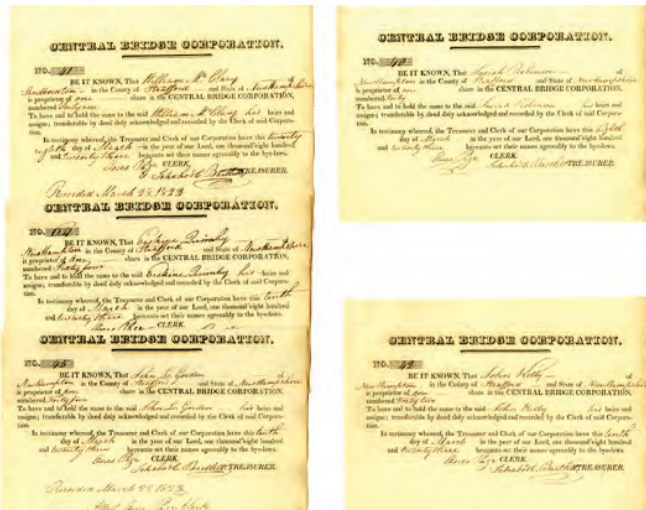 CENTRAL BRIDGE CORPORATION.
NO. 41
BE IT KNOWN, That William McClary of
in the County of Strafford and State of New Hampshire
is proprietor of one share in the CENTRAL BRIDGE CORPORATION,
numbered
To have and to hold the same to the said William McClary his heirs and
assigns; transferable by deed duly acknowledged and recorded by the Clerk of said Corpora-
tion.
In testimony whereof, the Treasurer and Clerk of our Corporation have this twenty
eighth day of March in the year of our Lord, one thousand eight hundred
and twenty three hereunto set their names agreeably to the bye-laws.
CLERK.
TREASURER.
Recorded March 28 1823
CENTRAL BRIDGE CORPORATION.
NO.
BE IT KNOWN, That Erskine Quimby of
New Hampton in the County of Strafford and State of New Hampshire
is proprietor of One share in the CENTRAL BRIDGE CORPORATION,
numbered
To have and to hold the same to the said Erskine Quimby his heirs and
assigns; transferable by deed duly acknowledged and recorded by the Clerk of said Corpora-
tion.
In testimony whereof, the Treasurer and Clerk of our Corporation have this tenth
day of March in the year of our Lord, one thousand eight hundred
and twenty three hereunto set their names agreeably to the bye-laws.
CLERK.
CENTRAL BRIDGE CORPORATION.
NO. 45
BE IT KNOWN, That John L. Gordon of
New Hampton in the County of Strafford and State of New Hampshire
is proprietor of one share in the CENTRAL BRIDGE CORPORATION,
numbered
To have and to hold the same to the said John L. Gordon his heirs and
assigns; transferable by deed duly acknowledged and recorded by the Clerk of said Corpora-
tion.
In testimony whereof, the Treasurer and Clerk of our Corporation have this tenth
day of March in the year of our Lord, one thousand eight hundred
and twenty three hereunto set their names agreeably to the bye-laws.
CLERK.
TREASURER.
Recorded March 28 1823
Clerk
CENTRAL BRIDGE CORPORATION.
NO. 40
BE IT KNOWN, That Josiah Robinson of
New Hampton in the County of Strafford and State of New Hampshire
is proprietor of one share in the CENTRAL BRIDGE CORPORATION,
numbered forty
To have and to hold the same to the said Josiah Robinson his heirs and
assigns; transferable by deed duly acknowledged and recorded by the Clerk of said Corpora-
tion.
In testimony whereof, the Treasurer and Clerk of our Corporation have this eighth
day of March in the year of our Lord, one thousand eight hundred
and twenty three hereunto set their names agreeably to the bye-laws.
CLERK.
TREASURER.
CENTRAL BRIDGE CORPORATION.
NO. 42
BE IT KNOWN, That John Kelly of
New Hampton in the County of Strafford and State of New Hampshire
is proprietor of one share in the CENTRAL BRIDGE CORPORATION,
numbered forty two
To have and to hold the same to the said John Kelly his heirs and
assigns; transferable by deed duly acknowledged and recorded by the Clerk of said Corpora-
tion.
In testimony whereof, the Treasurer and Clerk of our Corporation have this tenth
day of March in the year of our Lord, one thousand eight hundred
and twenty three hereunto set their names agreeably to the bye-laws.
CLERK.
TREASURER.